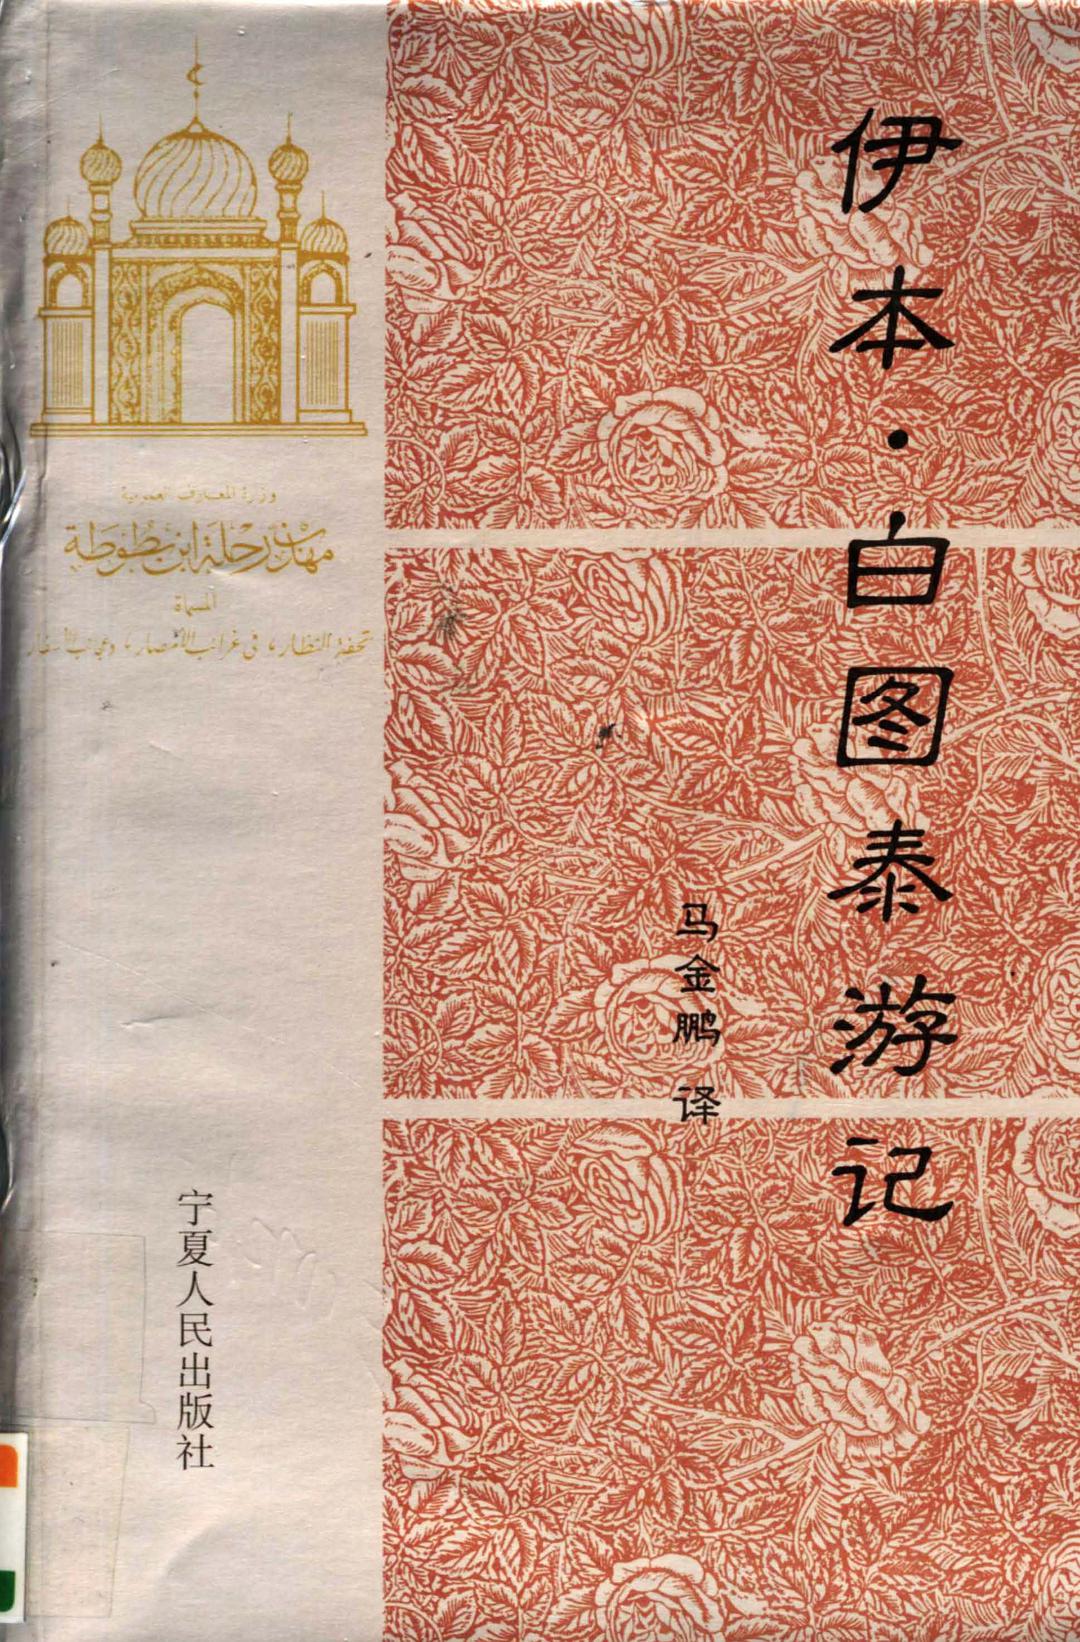 伊本·白图泰游记
马金鹏 译
وزارة المعارف العمومية
مهذب رحلة ابن بطوطة
المسماة
تحفة النظار، في غرائب الأمصار، وعجائب الأسفار
宁夏人民出版社